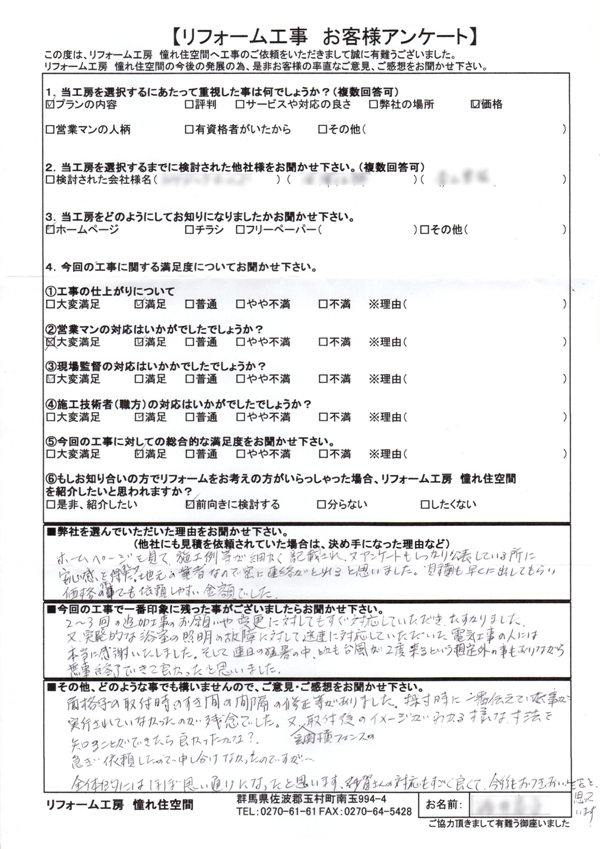 【リフォーム工事　お客様アンケート】
この度は、リフォーム工房　憧れ住空間へ工事のご依頼をいただきまして誠に有難うございました。
リフォーム工房　憧れ住空間の今後の発展の為、是非お客様の率直なご意見、ご感想をお聞かせ下さい。
1．当工房を選択するにあたって重視した事は何でしょうか？（複数回答可）
☑プランの内容　□評判　□サービスや対応の良さ　□弊社の場所　☑価格
□営業マンの人柄　□有資格者がいたから　□その他（　）
2．当工房を選択するまでに検討された他社様をお聞かせ下さい。（複数回答可）
□検討された会社様名（　）（　）（　）
3．当工房をどのようにしてお知りになりましたかお聞かせ下さい。
☑ホームページ　□チラシ　□フリーペーパー（　）□その他（　）
4．今回の工事に関する満足度についてお聞かせ下さい。
①工事の仕上がりについて
□大変満足　☑満足　□普通　□やや不満　□不満　※理由（　）
②営業マンの対応はいかがでしたでしょうか？
☒大変満足　☑満足　□普通　□やや不満　□不満　※理由（　）
③現場監督の対応はいかかでしたでしょうか？
☑大変満足　□満足　□普通　□やや不満　□不満　※理由（　）
④施工技術者（職方）の対応はいかがでしたでしょうか？
□大変満足　☑満足　□普通　□やや不満　□不満　※理由（　）
⑤今回の工事に対しての総合的な満足度をお聞かせ下さい。
□大変満足　☑満足　□普通　□やや不満　□不満　※理由（　）
⑥もしお知り合いの方でリフォームをお考えの方がいらっしゃった場合、リフォーム工房　憧れ住空間
を紹介したいと思われますか？
□是非、紹介したい　☑前向きに検討する　□分らない　□したくない
■弊社を選んでいただいた理由をお聞かせ下さい。
（他社にも見積を依頼されていた場合は、決め手になった理由など）
ホームページを見て、施工例等が細かく記載され、又アンケートもしっかり公表している所に
安心感を得た。地元の業者なので密に連絡がとれると思いました。見積も早くに出してもらい
価格の面でも依頼しやすい金額でした。
■今回の工事で一番印象に残った事がございましたらお聞かせ下さい。
2～3回の追加工事のお願いや変更に対してもすぐ対応していただき、たすかりました。
又、突発的な浴室の照明の故障に対して迅速に対応していただいた電気工事の人には
本当に感謝いたしました。そして連日の猛暑の中、しかも台風が2度来るという想定外の事もありながら
無事終了できて良かったと思いました。
■その他、どのような事でも構いませんので、ご意見・ご感想をお聞かせ下さい。
面格子の取付時のすき間の間隔の修正等がありました。採寸時に一番伝えていた事が
実行されていなかったのが残念でした。又、取付後のイメージがわかる様な寸法を
玄関横フェンスの
知ることができたら良かったかな？
急ぎ依頼したので申し分けなかったのですが…
全体的にはほぼ思い通りになったと思います。砂賀さんの対応もすごく良くて、今後もおつきあいしたいと
思っています
リフォーム工房　憧れ住空間
群馬県佐波郡玉村町南玉994-4
TEL：0270-61-61 FAX：0270-64-5428
お名前：
ご協力頂きまして有難う御座いました